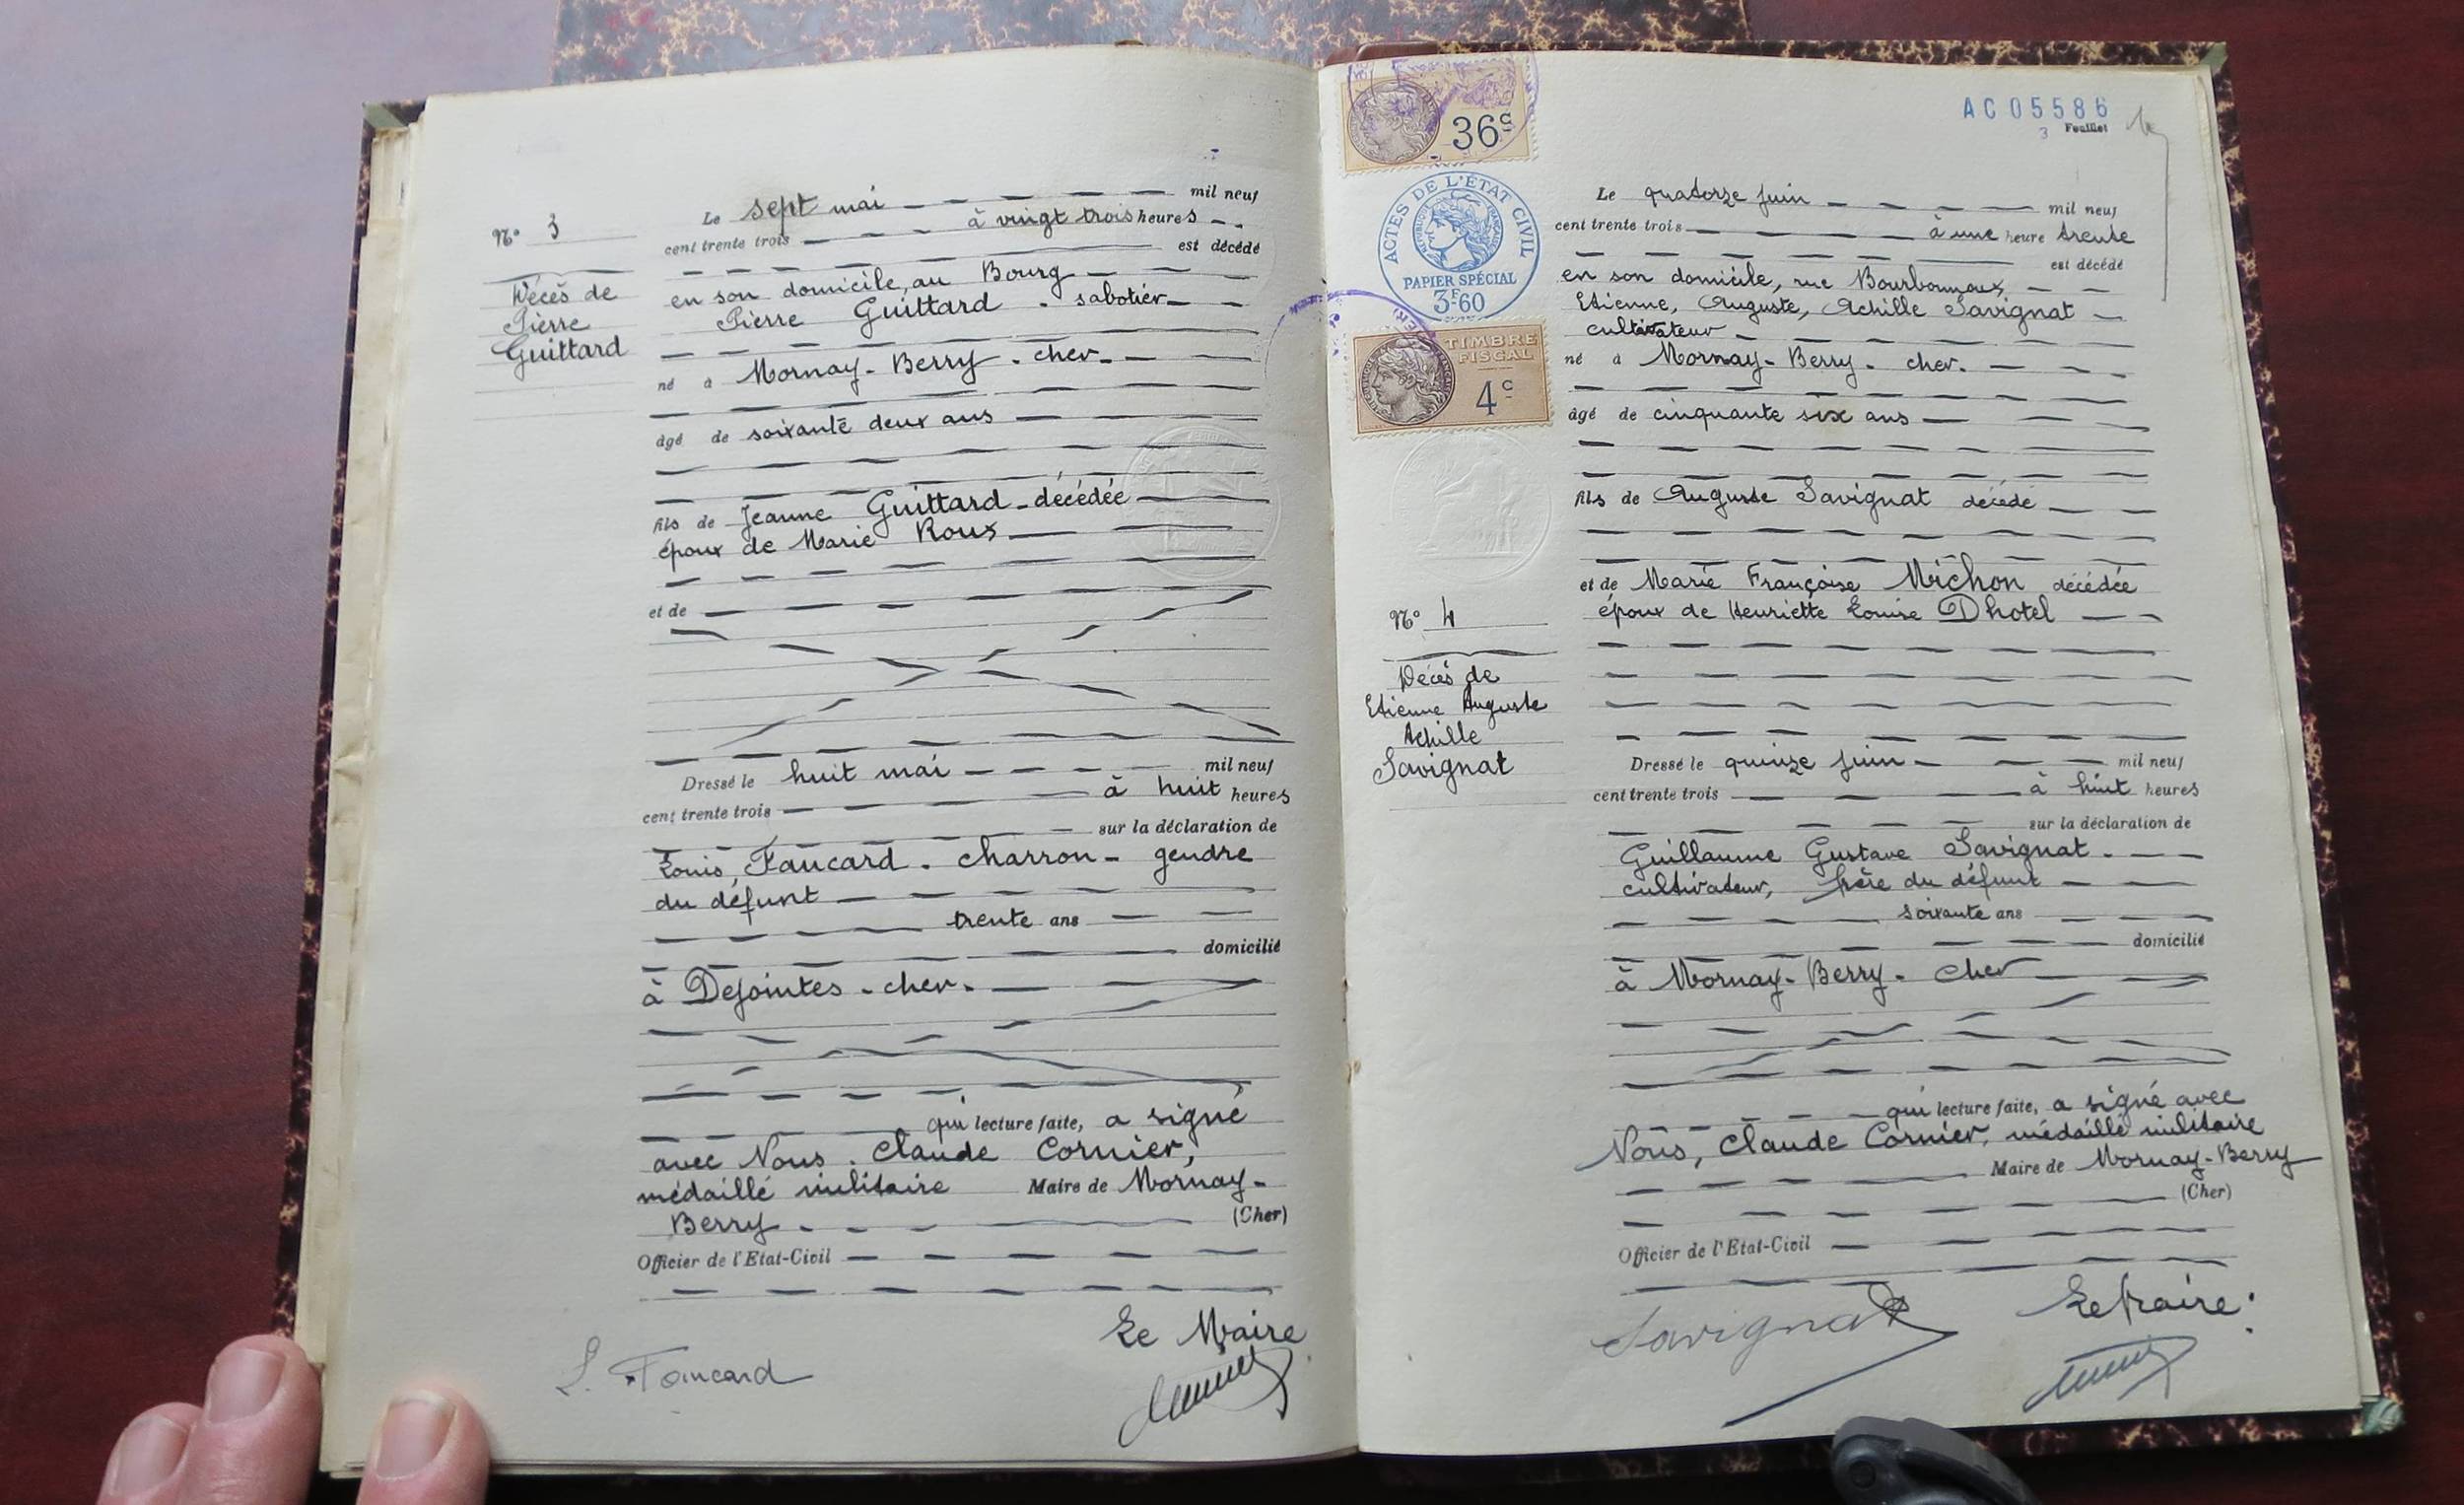 N° 3
Décès de
Pierre
Guittard
Le sept mai mil neuf
cent trente trois à vingt trois heures
est décédé
en son domicile, au Bourg
Pierre Guittard - sabotier
né à Mornay-Berry - cher.
âgé de soixante deux ans
fils de Jeanne Guittard - décédée
époux de Marie Roux
et de
Dressé le huit mai mil neuf
cent trente trois à huit heures
sur la déclaration de
Louis, Faucard - charron - gendre
du défunt
trente ans
domicilié
à Dejointes - cher.
qui lecture faite, a signé
avec Nous. Claude Cornier,
médaillé militaire Maire de Mornay-
Berry (Cher)
Officier de l'Etat-Civil
Le Maire
L. Faucard
36c
ACTES DE L'ÉTAT CIVIL
RÉPUBLIQUE FRANÇAISE
PAPIER SPÉCIAL
3F60
TIMBRE
FISCAL
4c
AC 05586
3 Feuillet
N° 4
Décès de
Etienne Auguste
Achille
Savignat
Le quatorze juin mil neuf
cent trente trois à une heure trente
est décédé
en son domicile, rue Bourbonnoux,
Etienne, Auguste, Achille Savignat
cultivateur
né à Mornay-Berry - cher.
âgé de cinquante six ans
fils de Auguste Savignat décédé
et de Marie Françoise Michon décédée
époux de Henriette Louise Dhotel
Dressé le quinze juin mil neuf
cent trente trois à huit heures
sur la déclaration de
Guillaume Gustave Savignat.
cultivateur, frère du défunt
soixante ans
domicilié
à Mornay-Berry - Cher
qui lecture faite, a signé avec
Nous, Claude Cornier, médaillé militaire
Maire de Mornay-Berry
(Cher)
Officier de l'Etat-Civil
Savignat
Le Maire: